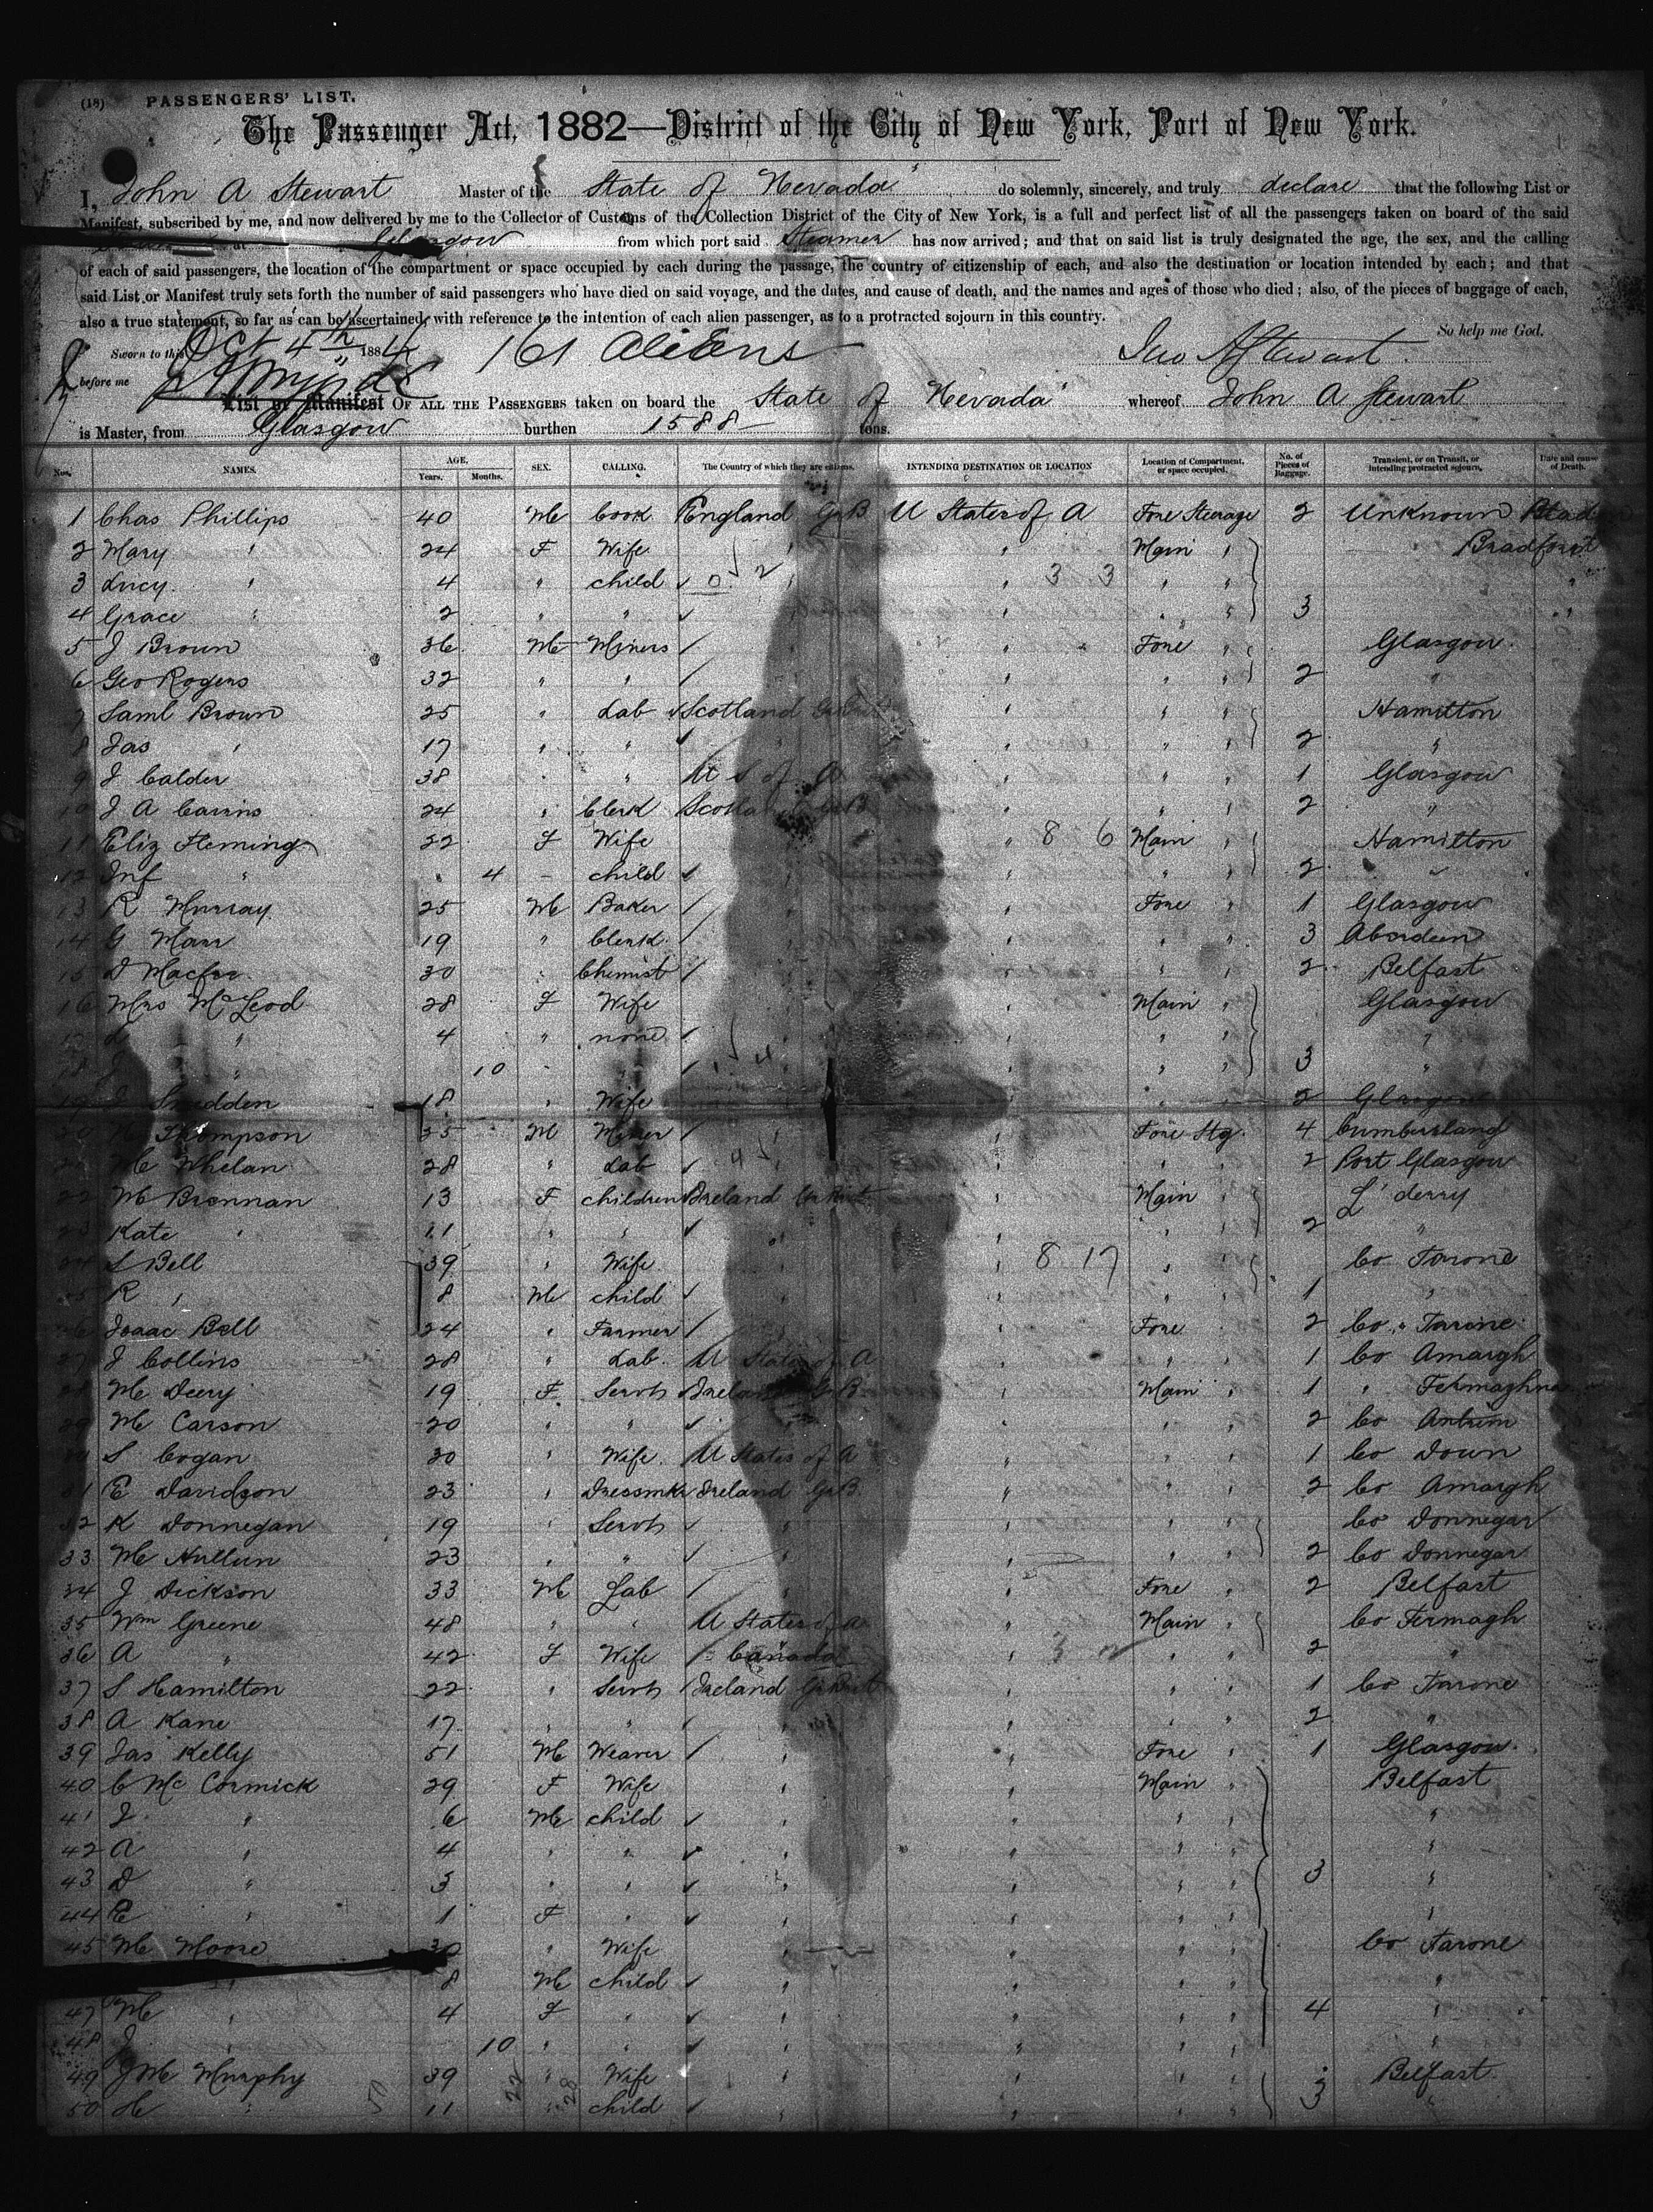 (18) PASSENGERS' LIST.
The Passenger Act, 1882—District of the City of New York, Port of New York.
I, John A Stewart Master of the State of Nevada do solemnly, sincerely, and truly declare that the following List or
Manifest, subscribed by me, and now delivered by me to the Collector of Customs of the Collection District of the City of New York, is a full and perfect list of all the passengers taken on board of the said
at Glasgow from which port said Steamer has now arrived; and that on said list is truly designated the age, the sex, and the calling
of each of said passengers, the location of the compartment or space occupied by each during the passage, the country of citizenship of each, and also the destination or location intended by each; and that
said List or Manifest truly sets forth the number of said passengers who have died on said voyage, and the dates, and cause of death, and the names and ages of those who died; also, of the pieces of baggage of each,
also a true statement, so far as can be ascertained, with reference to the intention of each alien passenger, as to a protracted sojourn in this country.
So help me God.
Sworn to this Oct 4th 1884 161 Aliens Jno A Stewart
before me
List or Manifest OF ALL THE PASSENGERS taken on board the State of Nevada whereof John A Stewart
is Master, from Glasgow burthen 1588 tons.
Nos. NAMES. AGE. Years. Months. SEX. CALLING. The Country of which they are citizens. INTENDING DESTINATION OR LOCATION Location of Compartment, or space occupied. No. of Pieces of Baggage. Transient, or on Transit, or intending protracted sojourn. Date and cause of Death.
1 Chas Phillips 40 M Cook England G B U States of A Fore Steerage 2 Unknown
2 Mary " 24 F Wife " " Main " Bradford
3 Lucy " 4 " child " " 3 3 " " "
4 Grace " 2 " " " " " 3 "
5 J Brown 36 M Miners " " Fore " Glasgow
6 Geo Rogers 32 " " " " " " 2 "
7 Saml Brown 25 " Lab Scotland Gr Brit " " " Hamilton
8 Jas " 17 " " " " " " 2 "
9 J Calder 38 " " U S of A " " " 1 Glasgow
10 J A Cairns 24 " Clerk Scotland Gr B " " " 2 "
11 Eliz Fleming 22 F Wife " " 8 6 Main " Hamilton
12 Inf " 4 - child " " " " 2 "
13 R Murray 25 M Baker " " Fore " 1 Glasgow
14 G Marr 19 " Clerk " " " " 3 Aberdeen
15 D 30 " Chemist " " " " 2 Belfast
16 Mrs McLeod 28 F Wife " " Main " Glasgow
" 4 " none " " " " "
J " 10 " " " " " " 3 "
Snedden 18 " Wife " " " " 2 Glasgow
20 Thompson 35 M Miner " " Fore Stg. 4 Cumberland
M Whelan 28 " Lab " " " " 2 Port Glasgow
22 M Brennan 13 F children Ireland Gr Brit " Main " L'derry
23 Kate " 11 " " " " " " 2 "
24 S Bell 39 " Wife " " 8 17 " " Co Tarone
25 R " 8 M child " " " " 1 "
26 Isaac Bell 24 " Farmer " " Fore 2 Co " Tarone
27 J Collins 28 " Lab. U States of A " " " 1 Co Amargh
28 M Deery 19 F Servts Ireland Gr B " Main " 1 "
29 M Carson 20 " " " " " " 2 Co Antrim
30 S Cogan 30 " Wife. U States of A " " " 1 Co Down
31 E Davidson 23 " Dressmkr Ireland Gr B. " " " 2 Co Amargh
32 K Donnegan 19 " Servts " " " " Co Donnegar
33 M 23 " " " " " " 2 Co Donnegar
34 J Dickson 33 M Lab " " Fore " 2 Belfast
35 Wm Greene 48 " " U States of A " Main " Co Fermagh
36 A " 42 F Wife Canada " " " 2 "
37 S Hamilton 22 " Servts Ireland Gr Brit " " " 1 Co Tarone
38 A Kane 17 " " " " " " 2 "
39 Jas Kelly 51 M Weaver " " Fore " 1 Glasgow
40 C McCormick 29 F Wife " " Main " Belfast
41 J " 6 M child " " " " "
42 A " 4 " " " " " " "
43 D " 3 " " " " " " 3 "
44 E " 1 F " " " " " "
45 M Moore 30 " Wife " " " " Co Tarone
" 8 M child " " " " "
47 M " 4 F " " " " " 4 "
48 J " 10 " " " " " " "
49 J M Murphy 39 " Wife " " " " Belfast
50 H " 11 " child " " " " 3 "
50 22 28